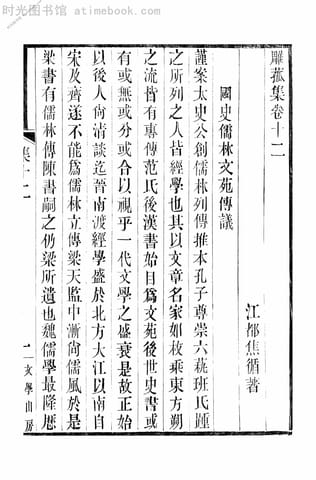 时光图书馆 - atimebook.com
雕菰集卷十二
江都焦循著
國史儒林文苑傳議
謹案太史公創儒林列傳推本孔子尊崇六蓺班氏踵
之所列之人皆經學也其以文章名家如枚乘東方朔
之流皆有專傳范氏後漢書始目為文苑後世史書或
有或無或分或合以視乎一代文學之盛衰是故正始
以後人尚清談迄晉南渡經學盛於北方大江以南自
宋及齊遂不能為儒林立傳梁天監中漸尚儒風於是
梁書有儒林傳陳書嗣之仍梁所遺也魏儒學最隆歷
集十二
一
文學山房